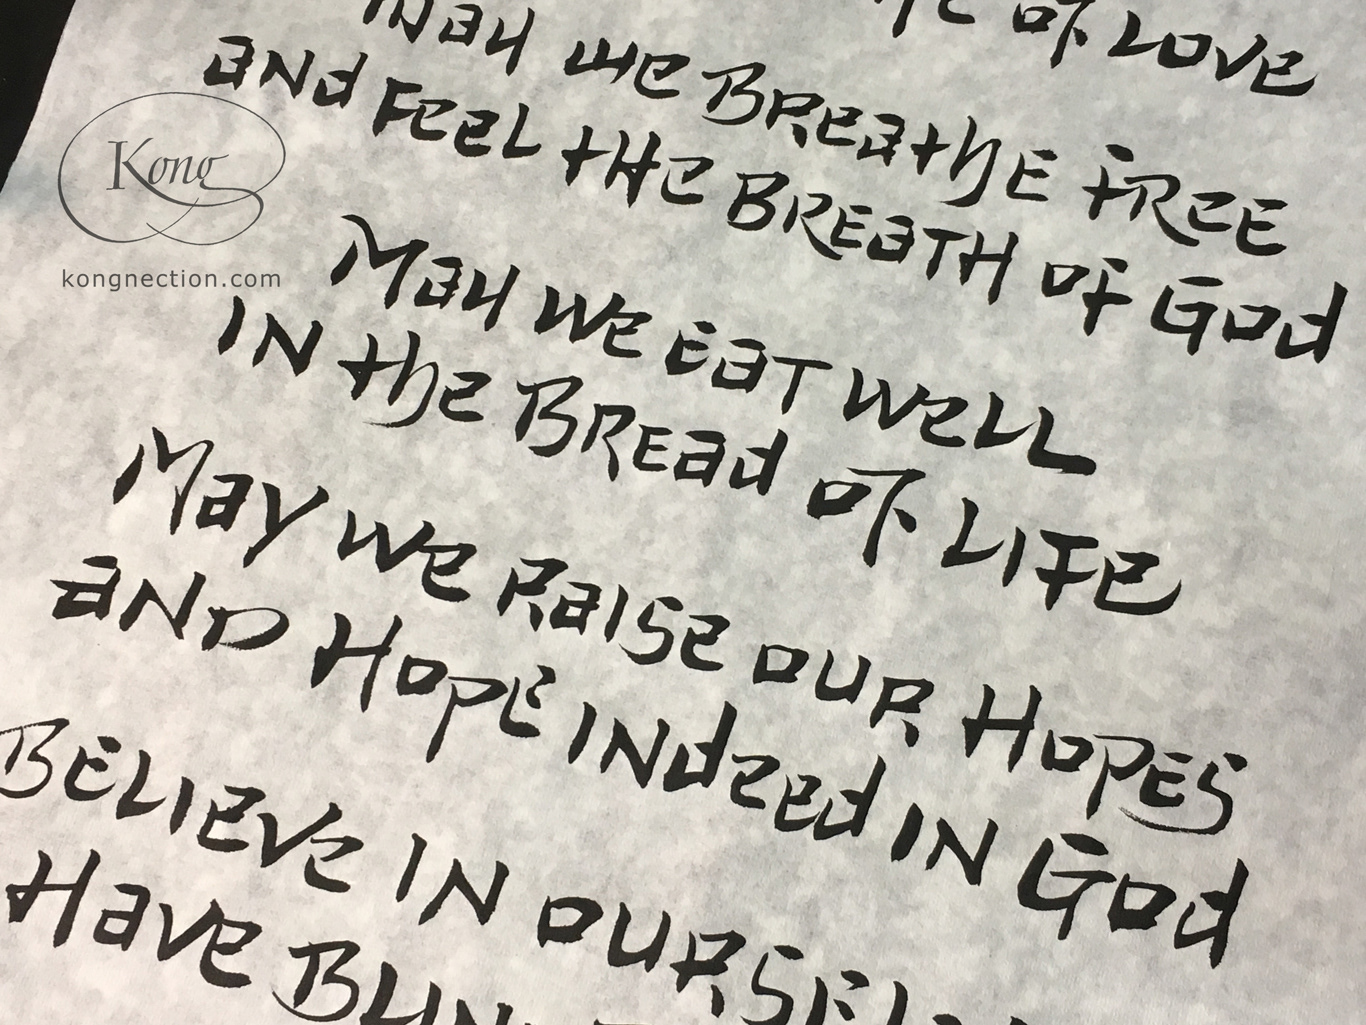 of Love
May we Breathe Free
and Feel the Breath of God
May we Eat Well
in the Bread of Life
May we Raise our Hopes
and Hope indeed in God
Believe in
Have
Kong
kongnection.com